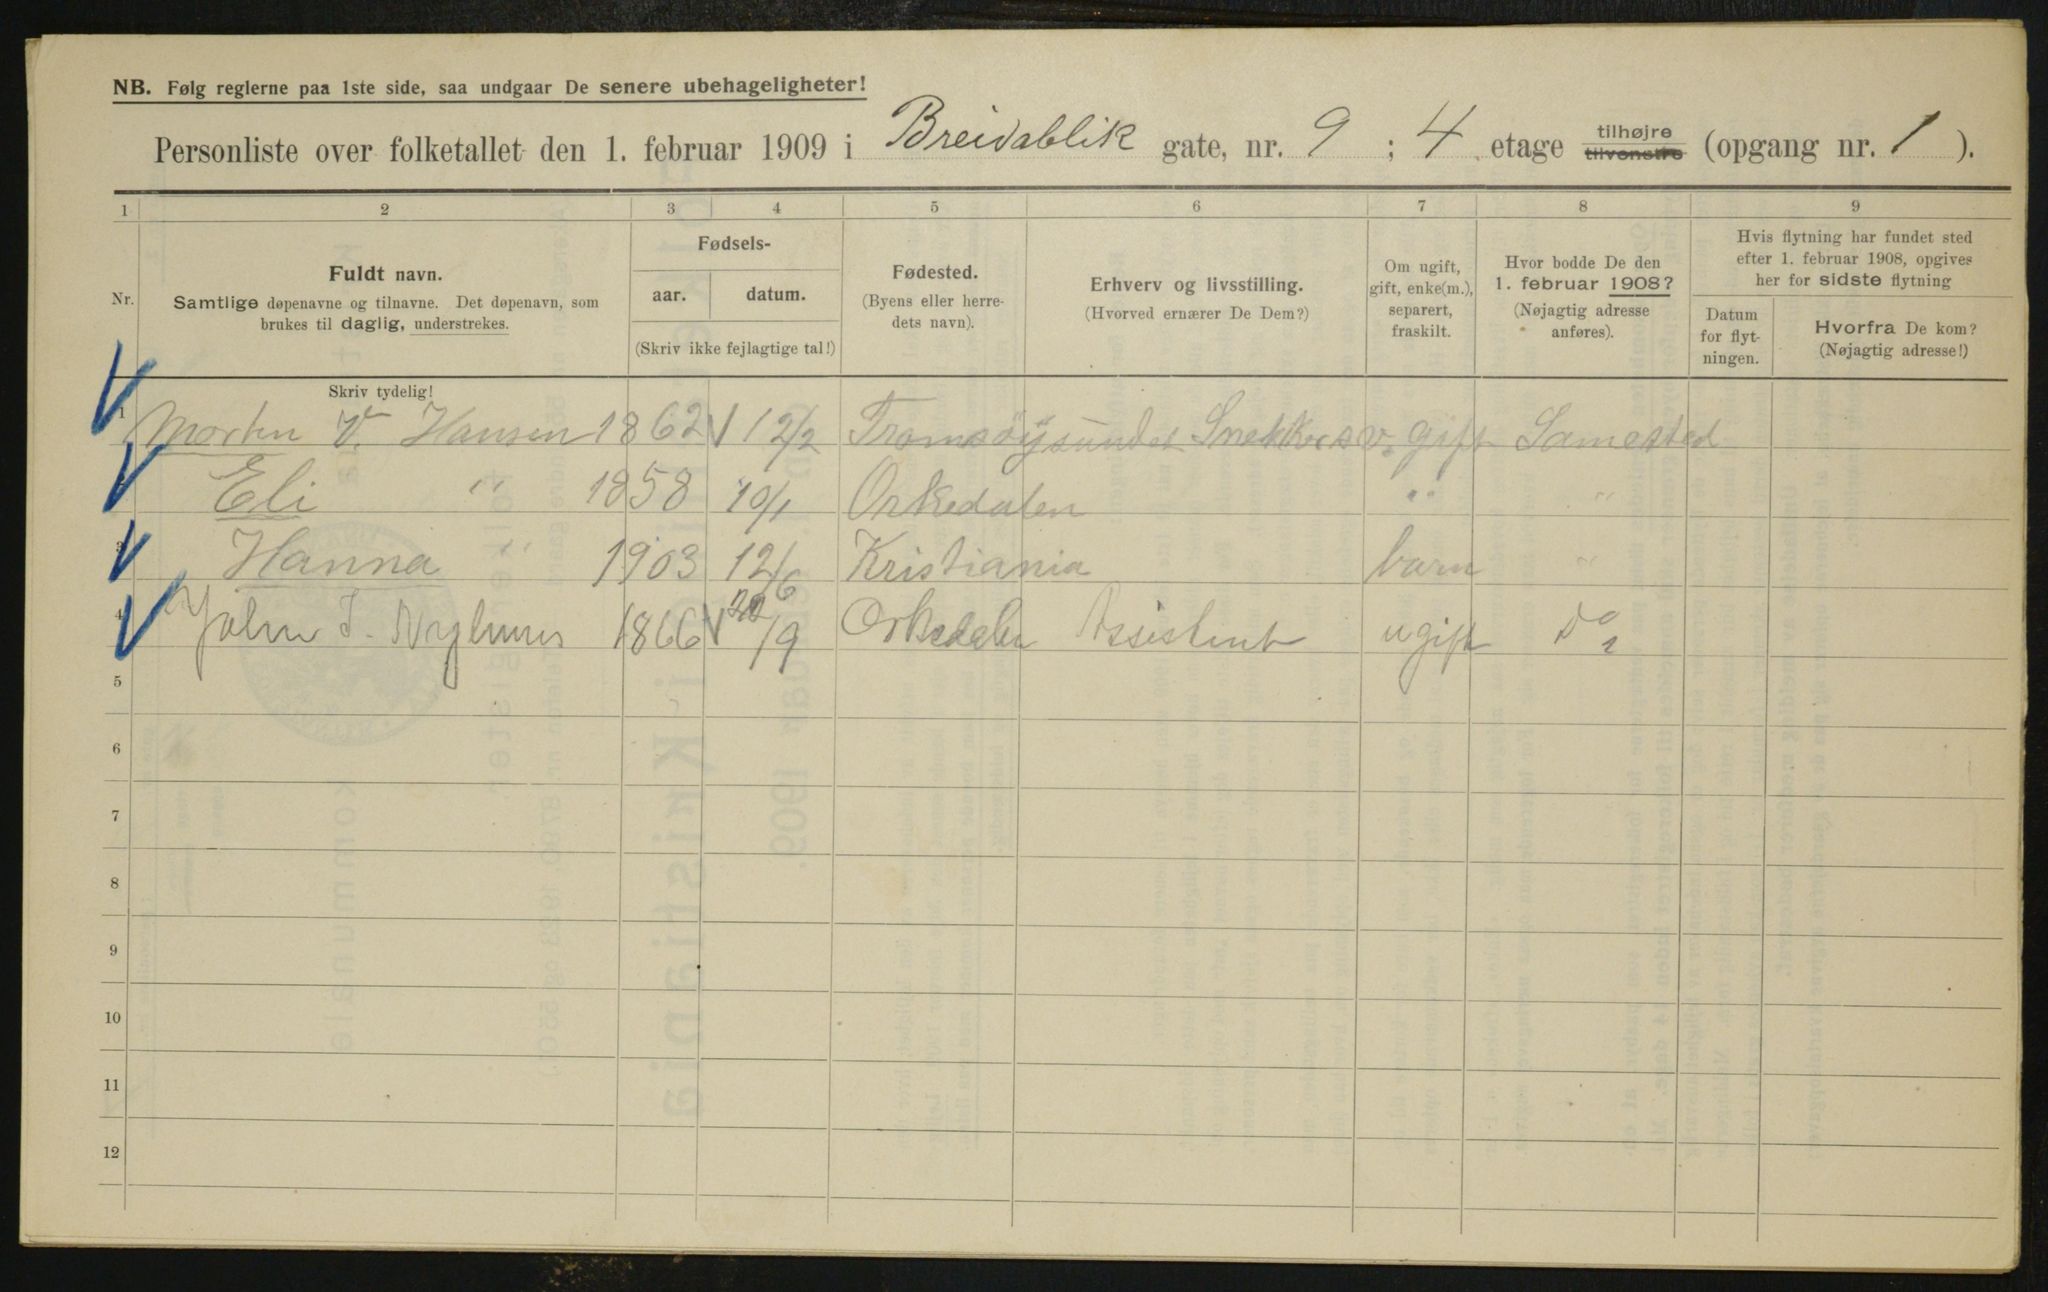 NB. Følg reglerne paa 1ste side, saa undgaar De senere ubehageligheter!
Personliste over folketallet den 1. februar 1909 i Breidablik gate, nr. 9 ; 4 etage tilhøjre tilvenstre (opgang nr. 1 ).
1 2 3 4 5 6 7 8 9
Nr.
Fuldt navn.
Samtlige døpenavne og tilnavne. Det døpenavn, som
brukes til daglig, understrekes.
Fødsels-
aar. datum.
(Skriv ikke fejlagtige tal!)
Fødested.
(Byens eller herre-
dets navn).
Erhverv og livsstilling.
(Hvorved ernærer De Dem?)
Om ugift,
gift, enke(m.),
separert,
fraskilt.
Hvor bodde De den
1. februar 1908?
(Nøjagtig adresse
anføres).
Hvis flytning har fundet sted
efter 1. februar 1908, opgives
her for sidste flytning
Datum
for flyt-
ningen.
Hvorfra De kom?
(Nøjagtig adresse!)
Skriv tydelig!
1 Morten V. Hansen 1862 12/2 Tromsöysundet Snekkersv. gift Samested
2 Eli " 1858 10/1 Orkedalen " "
3 Hanna " 1903 12/6 Kristiania barn "
4 John I. 1866 /9 Orkedalen Assistent ugift Do
5
6
7
8
9
10
11
12